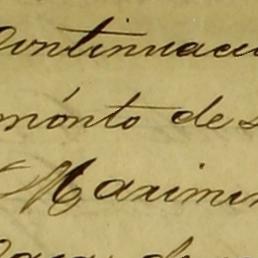 Continuaci
mónto de s
Maximin